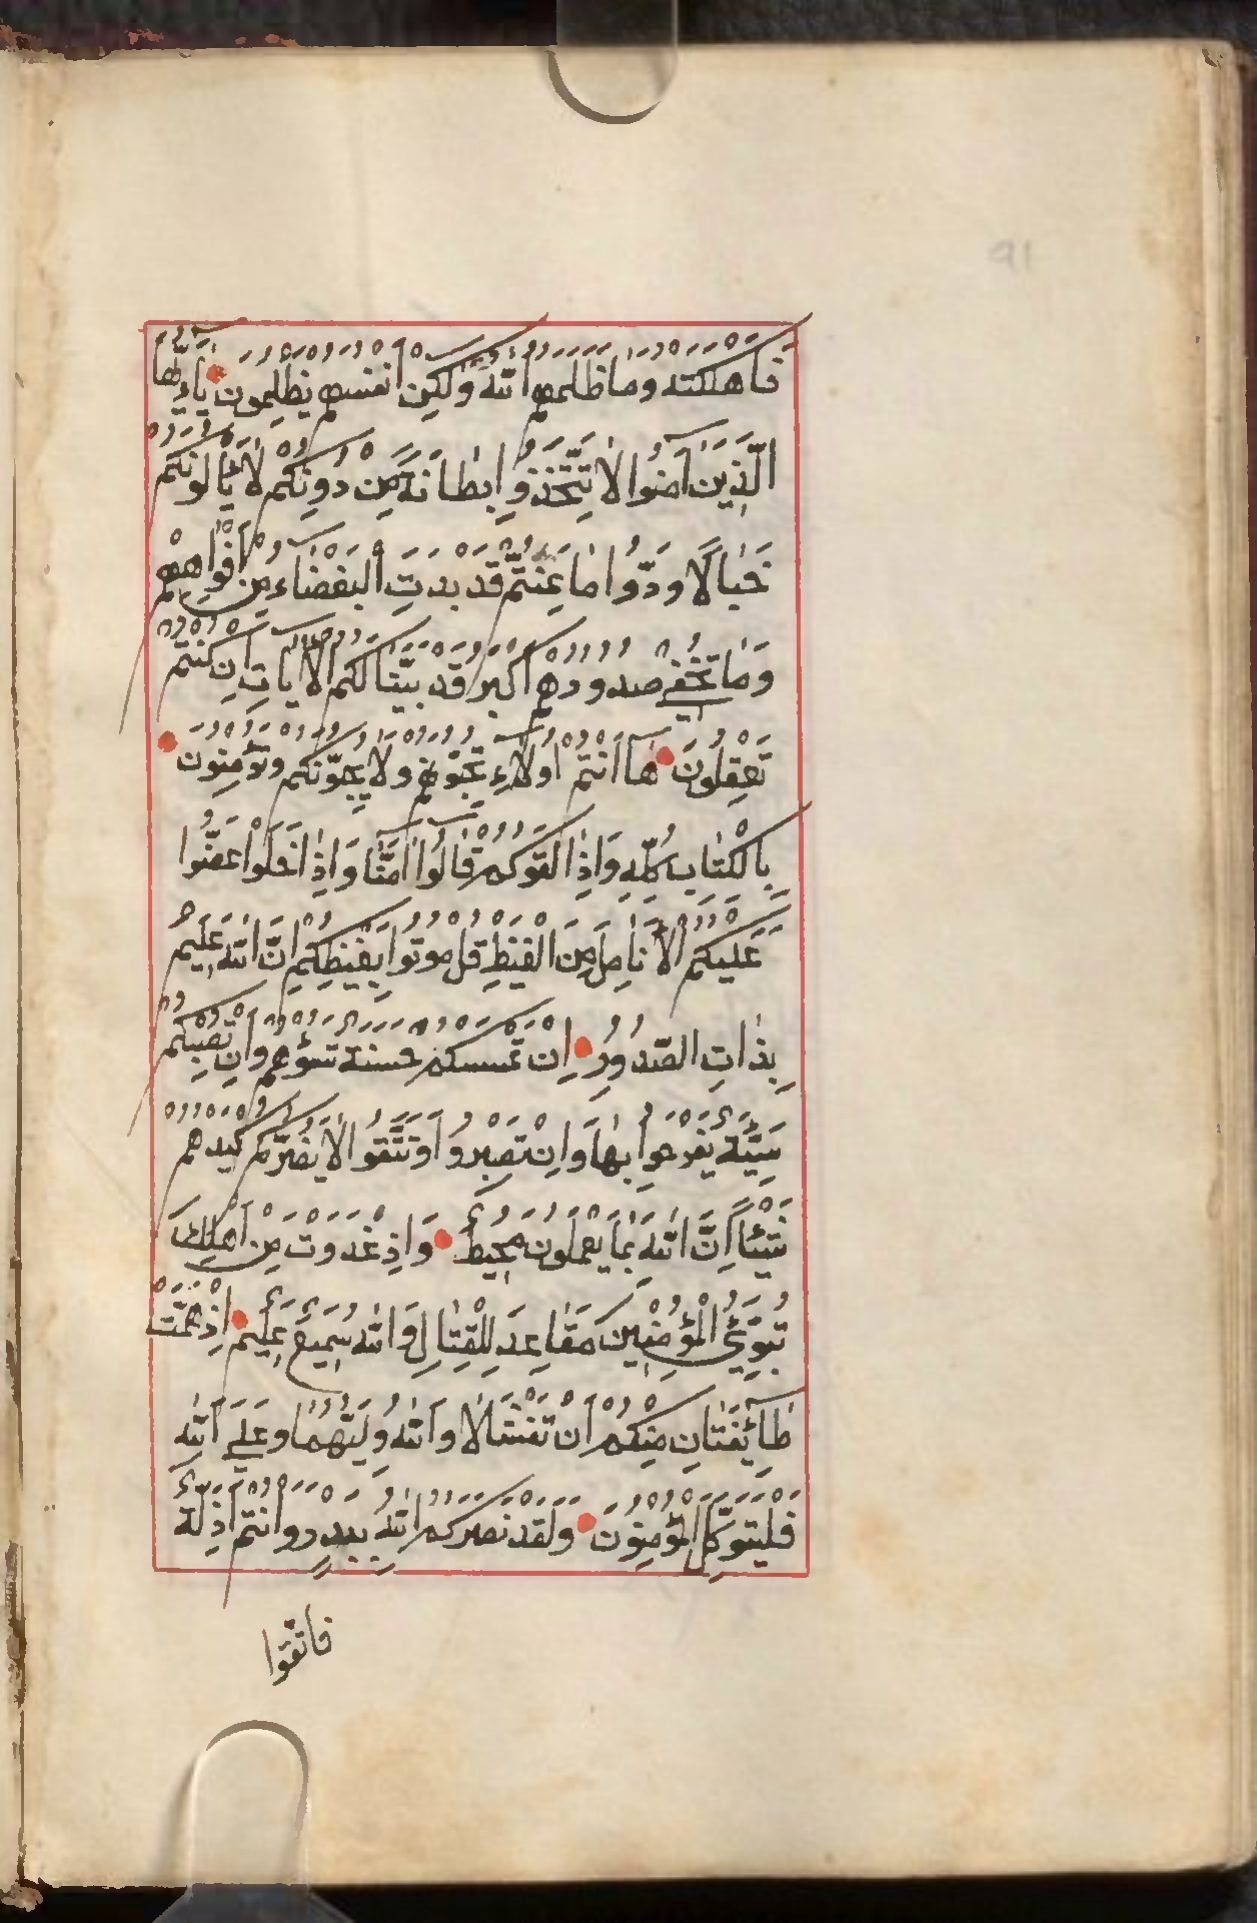 فَاَهْلَكَتْهُ وَمَا ظَلَمَهُمُ اللّٰهُ وَلٰكِنْ اَنْفُسَهُمْ يَظْلِمُونَ يَٓا اَيُّهَا
الَّذٖينَ اٰمَنُوا لَا تَتَّخِذُوا بِطَانَةً مِنْ دُونِكُمْ لَا يَأْلُونَكُمْ
خَبَالًا وَدُّوا مَا عَنِتُّمْ قَدْ بَدَتِ الْبَغْضَٓاءُ مِنْ اَفْوَاهِهِمْ
وَمَا تُخْفٖي صُدُورُهُمْ اَكْبَرُ قَدْ بَيَّنَّا لَكُمُ الْاٰيَاتِ اِنْ كُنْتُمْ
تَعْقِلُونَ هَٓا اَنْتُمْ اُولَٓاءِ تُحِبُّونَهُمْ وَلَا يُحِبُّونَكُمْ وَتُؤْمِنُونَ
بِالْكِتَابِ كُلِّهٖ وَاِذَا لَقُوكُمْ قَالُٓوا اٰمَنَّا وَاِذَا خَلَوْا عَضُّوا
عَلَيْكُمُ الْاَنَامِلَ مِنَ الْغَيْظِ قُلْ مُوتُوا بِغَيْظِكُمْ اِنَّ اللّٰهَ عَلٖيمٌ
بِذَاتِ الصُّدُورِ اِنْ تَمْسَسْكُمْ حَسَنَةٌ تَسُؤْهُمْ وَاِنْ تُصِبْكُمْ
سَيِّئَةٌ يَفْرَحُوا بِهَا وَاِنْ تَصْبِرُوا وَتَتَّقُوا لَا يَضُرُّكُمْ كَيْدُهُمْ
شَيْئًا اِنَّ اللّٰهَ بِمَا يَعْمَلُونَ مُحٖيطٌ وَاِذْ غَدَوْتَ مِنْ اَهْلِكَ
تُبَوِّئُ الْمُؤْمِنٖينَ مَقَاعِدَ لِلْقِتَالِ وَاللّٰهُ سَمٖيعٌ عَلٖيمٌ اِذْ هَمَّتْ
طَٓائِفَتَانِ مِنْكُمْ اَنْ تَفْشَلَا وَاللّٰهُ وَلِيُّهُمَا وَعَلَى اللّٰهِ
فَلْيَتَوَكَّلِ الْمُؤْمِنُونَ وَلَقَدْ نَصَرَكُمُ اللّٰهُ بِبَدْرٍ وَاَنْتُمْ اَذِلَّةٌ
فاتّقوا